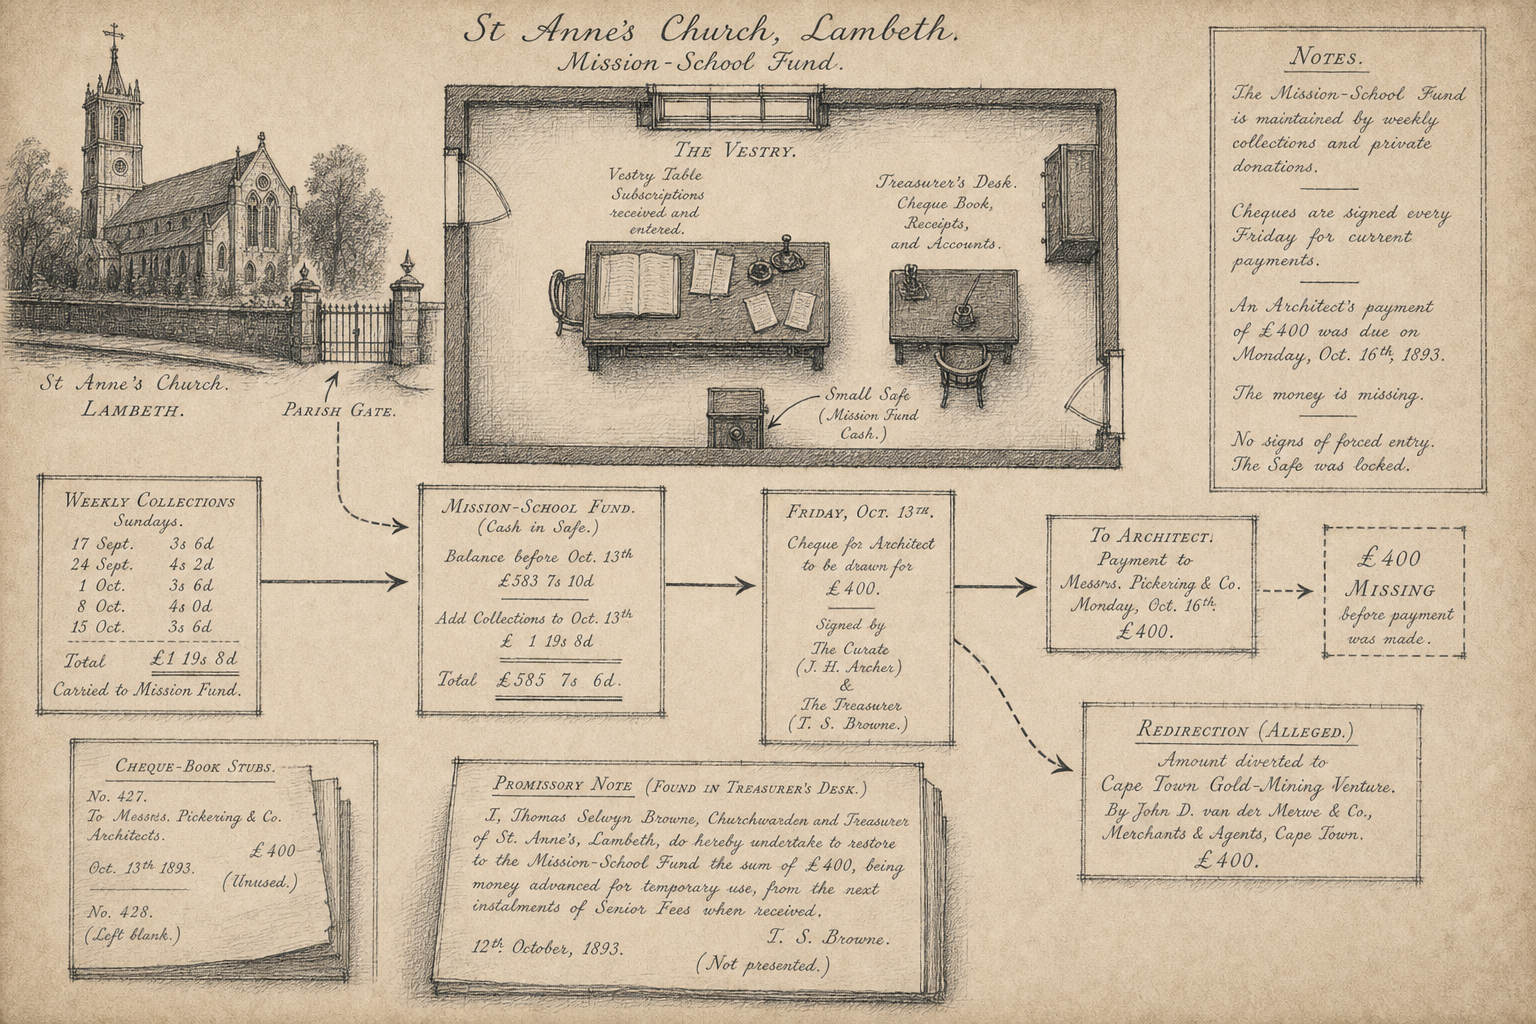 St Anne's Church, Lambeth.
Mission-School Fund.
St Anne's Church.
LAMBETH.
PARISH GATE.
THE VESTRY.
Vestry Table
Subscriptions
received and
entered.
Treasurer's Desk.
Cheque Book,
Receipts,
and Accounts.
Small Safe
(Mission Fund
Cash.)
NOTES.
The Mission-School Fund
is maintained by weekly
collections and private
donations.
Cheques are signed every
Friday for current
payments.
An Architect's payment
of £400 was due on
Monday, Oct. 16th, 1893.
The money is missing.
No signs of forced entry.
The Safe was locked.
WEEKLY COLLECTIONS
Sundays.
17 Sept. 3s 6d
24 Sept. 4s 2d
1 Oct. 3s 6d
8 Oct. 4s 0d
15 Oct. 3s 6d
Total £1 19s 8d
Carried to Mission Fund.
MISSION-SCHOOL FUND.
(Cash in Safe.)
Balance before Oct. 13th
£583 7s 10d
Add Collections to Oct. 13th
£ 1 19s 8d
Total £585 7s 6d.
FRIDAY, OCT. 13TH.
Cheque for Architect
to be drawn for
£400.
Signed by
The Curate
(J. H. Archer)
&
The Treasurer
(T. S. Browne.)
TO ARCHITECT.
Payment to
Messrs. Pickering & Co.
Monday, Oct. 16th.
£400.
£400
MISSING
before payment
was made.
REDIRECTION (ALLEGED.)
Amount diverted to
Cape Town Gold-Mining Venture.
By John D. van der Merwe & Co.,
Merchants & Agents, Cape Town.
£400.
CHEQUE-BOOK STUBS.
No. 427.
To Messrs. Pickering & Co.
Architects.
£400
Oct. 13th 1893.
(Unused.)
No. 428.
(Left blank.)
PROMISSORY NOTE (FOUND IN TREASURER'S DESK.)
I, Thomas Selwyn Browne, Churchwarden and Treasurer
of St. Anne's, Lambeth, do hereby undertake to restore
to the Mission-School Fund the sum of £400, being
money advanced for temporary use, from the next
instalments of Senior Fees when received.
T. S. Browne.
12th October, 1893.
(Not presented.)